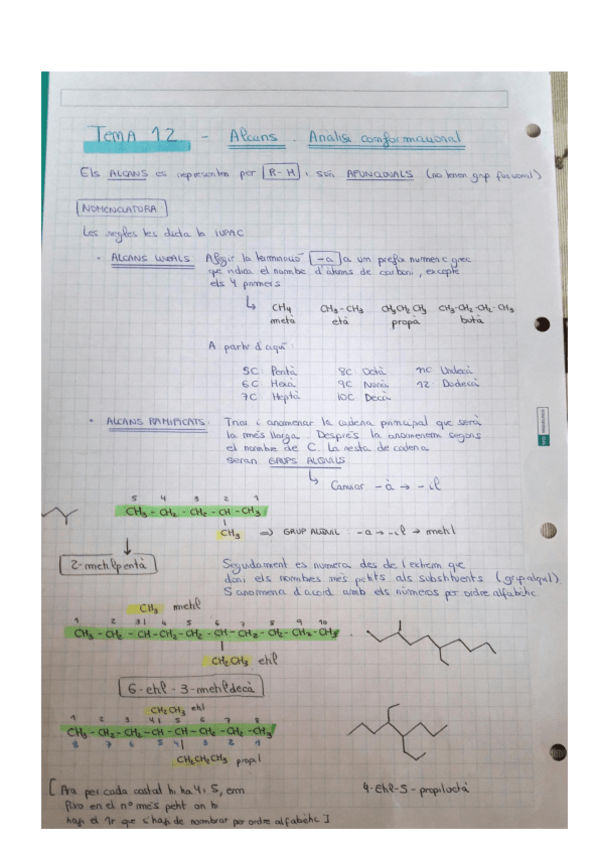 TEMA 12 - Alcans. Analisi conformacional
Els ALCANS es representen per R-H i són APUNCIONALS (no tenen grup funcional)
NOMENCLATURA:
Les regles les dicta la IUPAC
- ALCANS LINEALS: Afegir la terminació -à a un prefix numèric grec
que indica el nombre d'àtoms de carboni, excepte
els 4 primers
↳ CH4 CH3-CH3 CH3CH2CH3 CH3-CH2-CH2-CH3
metà età propà butà
A partir d'aquí:
5C: Pentà 8C: Octà 11C: Undecà
6C: Hexà 9C: Nonà 12: Dodecà
7C: Heptà 10C: Decà
- ALCANS RAMIFICATS: Triar i anomenar la cadena principal que serà
la més llarga. Després la anomenem segons
el nombre de C. La resta de cadena
seran GRUPS ALQUILS
↳ Canviar -à → -il
5 4 3 2 1
CH3-CH2-CH2-CH-CH3
CH3 => GRUP ALQUIL: -à → -il → metil
2-metilpentà
Seguidament es numera des de l'extrem que
doni els nombres més petits als substituents (grup alquil).
S'anomena d'acord amb els números per ordre alfabètic.
CH3 metil
1 2 3 4 5 6 7 8 9 10
CH3-CH2-CH-CH2-CH2-CH-CH2-CH2-CH2-CH3
CH2CH3 etil
6-etil-3-metildecà
CH2CH3 etil
1 2 3 4 5 6 7 8
CH3-CH2-CH2-CH-CH-CH2-CH2-CH3
8 7 6 5 4 3 2 1
CH2CH2CH3 propil
[Ara per cada costat hi ha 4 i 5, em
fixo en el nº més petit on hi
hagi el 1r que s'hagi de nombrar per ordre alfabètic]
4-Etil-5-propiloctà